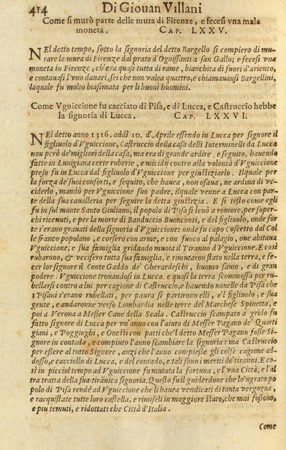 414 Di Giouan Villani
Come si murò parte delle mura di Firenze, e fecesi vna mala
moneta. CAP. LXXV.
NEl detto tempo, sotto la signoria del detto Bargello si compiero di mu-
rare la mura di Firenze dal prato d'Ogniſſanti a san Gallo; e fecesi vna
moneta in Firenze, ch'era quasi tutta di rame, bianchita di fuori d'ariento,
e contauasi l'vno danari, sei che non valea quattro, e chiamauansi Bargellini,
laquale fu molto biasimata per li buoni huomini.
Come Vguiccione fu cacciato di Pisa, e di Lucca, e Castruccio hebbe
la signoria di Lucca. CAP. LXXVI.
NEl detto anno 1316. addì 10. d'Aprile essendo in Lucca per signore il
figliuolo d'Vguiccione, Castruccio della casa delli Interminelli da Lucca
non però de' migliori della casa, ma era di grande ardire, e seguito, hauendo
fatte in Lunigiana certe ruberie, e micidi contro alla volontà d'Vguiccione
preso fu in Lucca dal figliuolo d'Vguiccione per giustiziarlo. Ilquale per
la forza de' suoi consorti, e seguito, che hauea, non osaua, ne ardiua di vc-
ciderlo, mandò per Vguiccione suo padre, ilquale venne a Lucca con par-
te della sua caualleria per seguire la detta giustizia. E sì tosto come egli
fu in sul monte Santo Giuliano, il popolo di Pisa si leuò a romore, per soper-
chi riceuuti, e per la morte di Banduccio Buonconti, e del figliuolo, onde for-
te s'erano granati della signoria d'Vguiccione: onde fu capo Coscetto dal Col
le franco popolano, e corsero con arme, e con fuoco al palagio, oue abitaua
Vguiccione, e sua famiglia gridando muoia il Tiranno d'Vguiccione. E così
rubarono, & vccisero tutta sua famiglia, e rimutaro stato nella terra, e fe-
cer lor signore il conte Gaddo de' Gherardeschi, huomo sauio, e di gran
podere. Vguiccione trouandosi in Lucca, e quasi la terra scommossa per ru-
bellarsi contro a lui per cagione di Castruccio, e hauendo nouelle da Pisa che
i Pisani s'erano rubellati, per paura si partirono elli, e 'l figliuolo, e sua
gente, e andaronne verso Lombardia nelle terre del Marchese Spinetta, e
poi a Verona a Messer Cane della Scala. Castruccio scampato a grido fu
fatto signore di Lucca per vn'anno con l'aiuto di Messer Pagano de' Quarti
giani, e Pogginghi, e Onesti con patti che 'l detto Messer Pagano fusse Si-
gnore in contado, e compiuto l'anno scambiare la signoria: ma Castruccio
per essere al tutto Signore, anzi che l'anno compiesse gli colse cagione ad-
dosso, e cacciollo di Lucca, e del contado, e tali sono i meriti de' tiranni. E co-
sì in picciol tempo ad Vguiccione fu mutata la fortuna, e l'vna Città, e l'al
tra tratta della sua tirannica signoria. Questo si fu il guiderdone che lo'ngrato po
polo di Pisa rendè ad Vguiccione che li hauea vendicati di tanta vergogna,
e racquistate tutte loro castella, e rimesseli in maggiore stato, che mai fossono,
e piu temuti, e ridottati che Città d'Italia.
Come